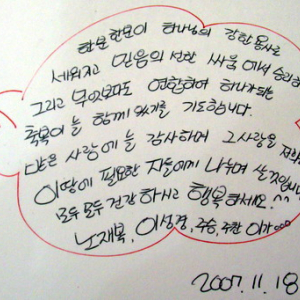 한분 한분이 하나님의 강한 용사로
세워지고 믿음의 선한 싸움에서 승리하
그리고 무엇보다도 연합하여 하나가되는
축복이 늘 함께 있기를 기도합니다.
받은 사랑에 늘 감사하며 그사랑을 저희
이땅에 필요한 자들에게 나누며 살것입니
모두 모두 건강하시고 행복하세요^^
노재복, 이성경, 주승, 주찬 이가
2007.11.18